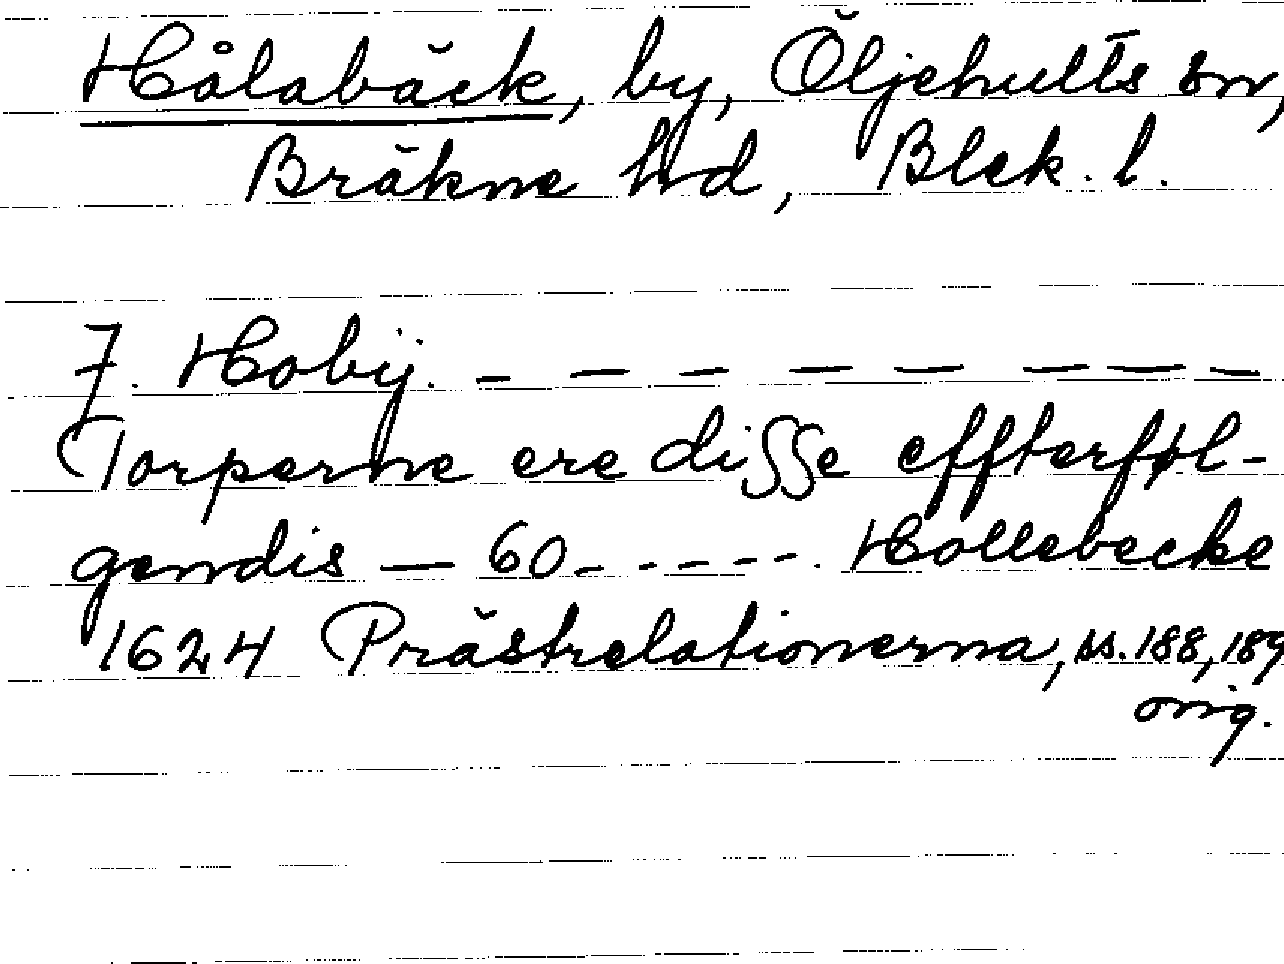 Hålabäck, by, Öljehults sn,
Bräkne hd, Blek. l.
7. Hobÿ. — — — — — — — —
Torperne ere disse effterføl-
gendis — 60 - - - - - . Hollebecke
1624 Prästrelationerna, ss. 188, 189
orig.